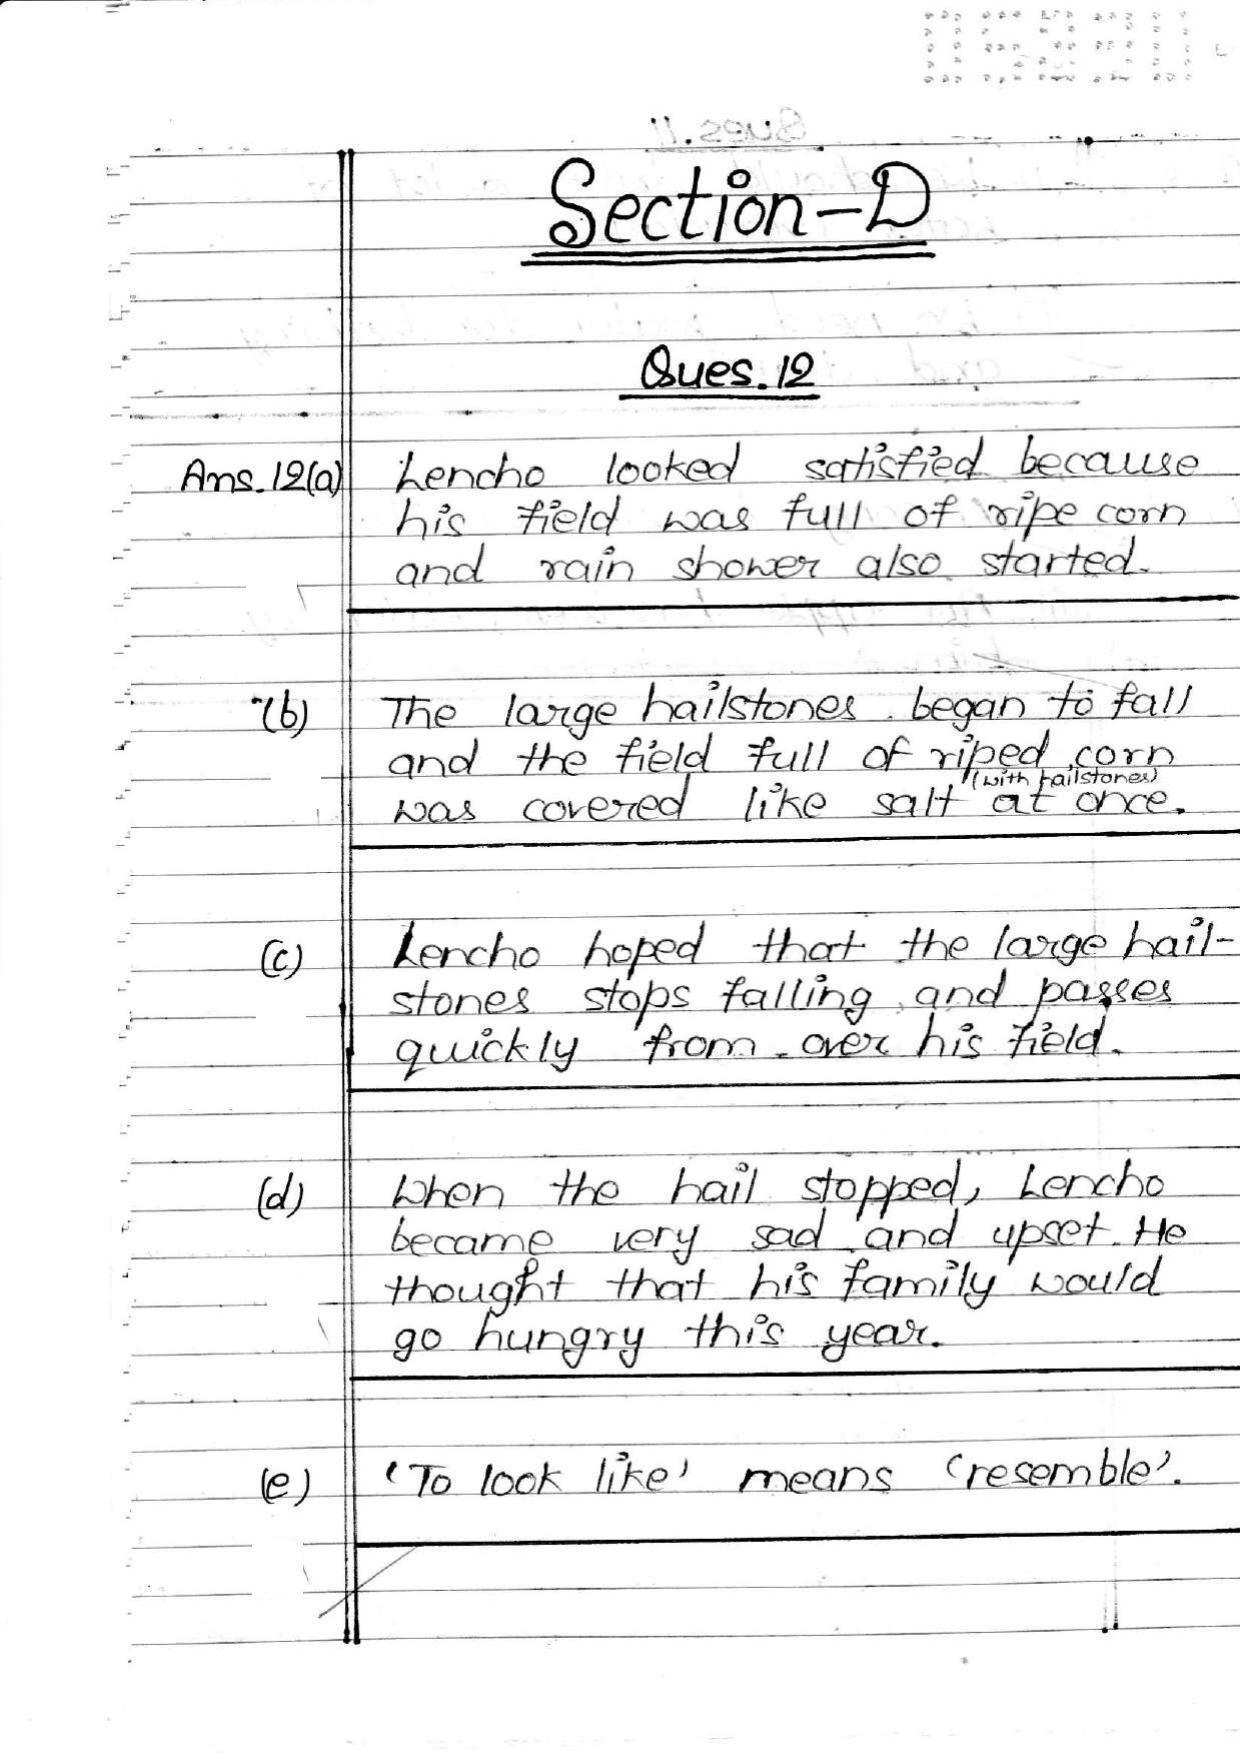 Section-D
Ques.12
Ans.12(a) Lencho looked satisfied because
his field was full of ripe corn
and rain shower also started.
(b) The large hailstones began to fall
and the field full of riped corn
(with hailstones)
was covered like salt at once.
(c) Lencho hoped that the large hail-
stones stops falling and passes
quickly from over his field.
(d) When the hail stopped, Lencho
became very sad and upset. He
thought that his family would
go hungry this year.
(e) 'To look like' means 'resemble'.